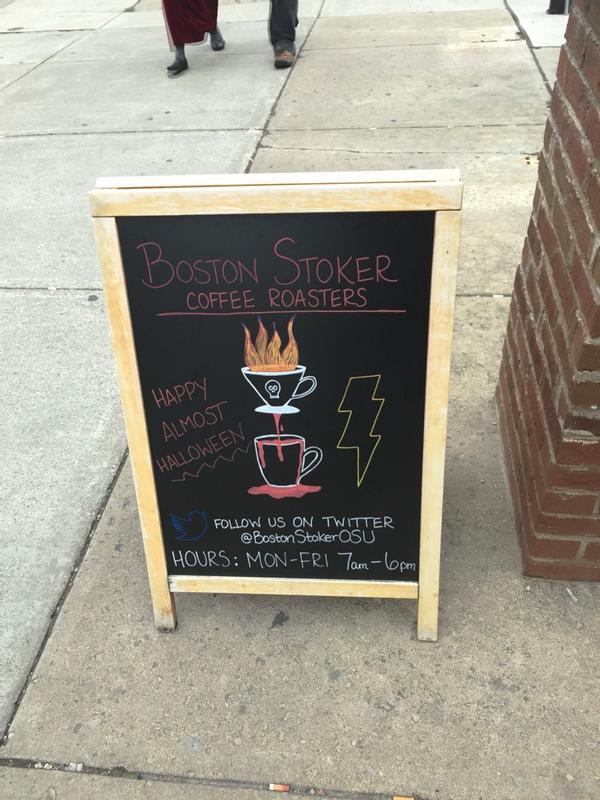 BOSTON STOKER
COFFEE ROASTERS
HAPPY
ALMOST
HALLOWEEN
FOLLOW US ON TWITTER
@BostonStokerOSU
HOURS: MON-FRI 7am-6pm